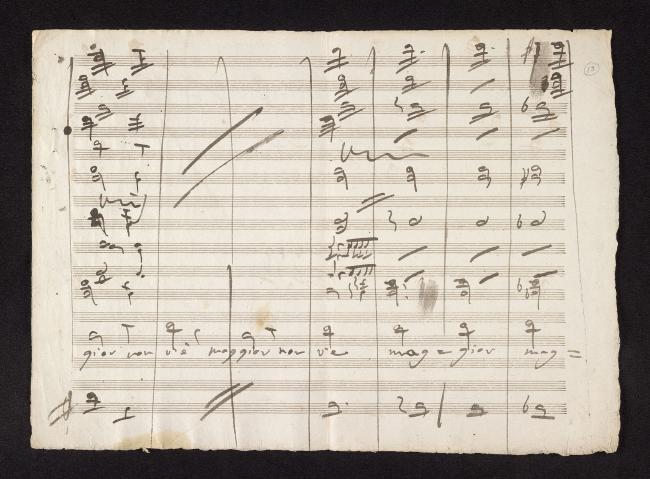 13
gior non v'è maggior non v'è mag gior mag =